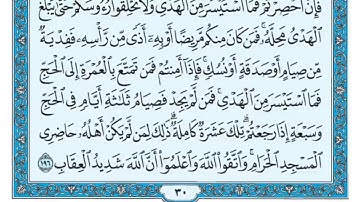 فَإِنْ أُحْصِرْتُمْ فَمَا ٱسْتَيْسَرَ مِنَ ٱلْهَدْىِ وَلَا تَحْلِقُوا۟ رُءُوسَكُمْ حَتَّىٰ يَبْلُغَ
ٱلْهَدْىُ مَحِلَّهُۥ فَمَن كَانَ مِنكُم مَّرِيضًا أَوْ بِهِۦٓ أَذًى مِّن رَّأْسِهِۦ فَفِدْيَةٌ
مِّن صِيَامٍ أَوْ صَدَقَةٍ أَوْ نُسُكٍ فَإِذَآ أَمِنتُمْ فَمَن تَمَتَّعَ بِٱلْعُمْرَةِ إِلَى ٱلْحَجِّ
فَمَا ٱسْتَيْسَرَ مِنَ ٱلْهَدْىِ فَمَن لَّمْ يَجِدْ فَصِيَامُ ثَلَٰثَةِ أَيَّامٍ فِى ٱلْحَجِّ
وَسَبْعَةٍ إِذَا رَجَعْتُمْ تِلْكَ عَشَرَةٌ كَامِلَةٌ ذَٰلِكَ لِمَن لَّمْ يَكُنْ أَهْلُهُۥ حَاضِرِى
ٱلْمَسْجِدِ ٱلْحَرَامِ وَٱتَّقُوا۟ ٱللَّهَ وَٱعْلَمُوٓا۟ أَنَّ ٱللَّهَ شَدِيدُ ٱلْعِقَابِ ١٩٦
٣٠